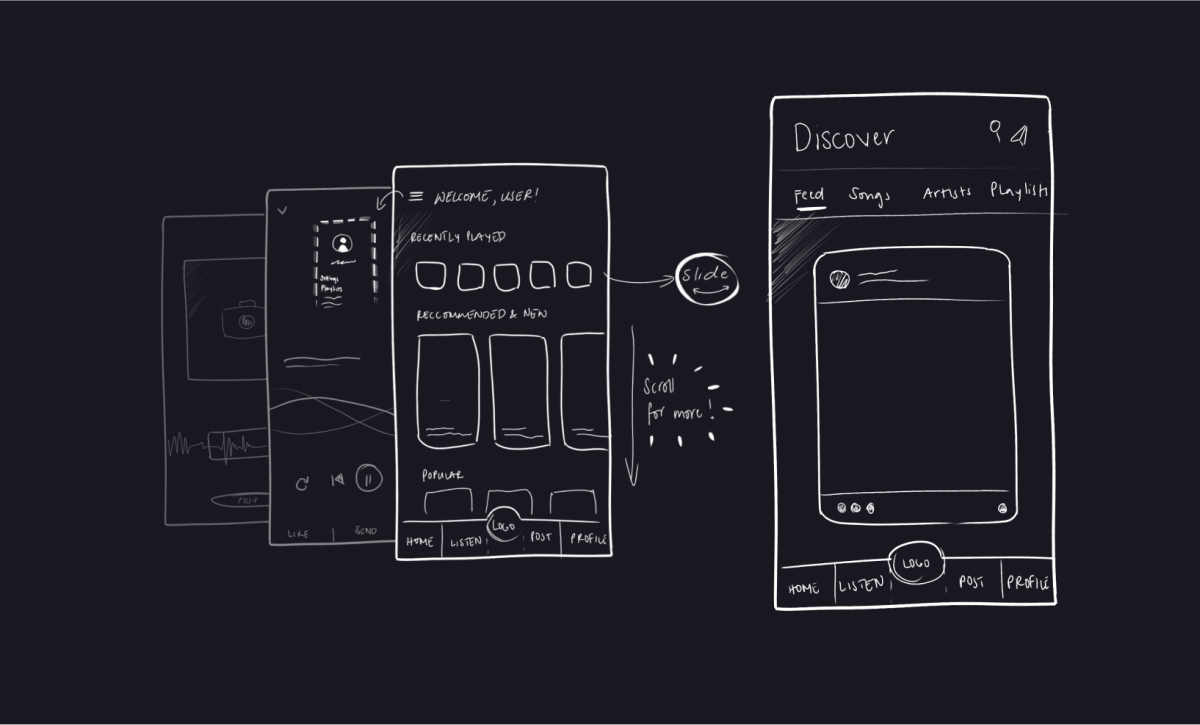 POST
LIKE
SEND
Settings
Playlists
WELCOME, USER!
RECENTLY PLAYED
RECCOMMENDED & NEW
POPULAR
HOME
LISTEN
LOGO
POST
PROFILE
Slide
Scroll
for more!
Discover
Feed
Songs
Artists
Playlists
HOME
LISTEN
LOGO
POST
PROFILE